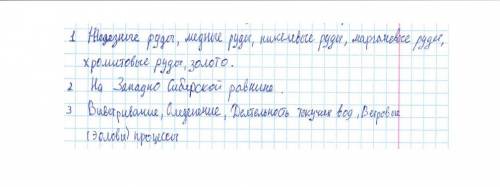 1 Железные руды, медные руды, никелевые руды, марганцевые руды,
хромитовые руды, золото.
2 На Западно Сибирской равнине.
3 Выветривание, Оледенение, Деятельность текучих вод, Ветровые
(эоловы) процессы